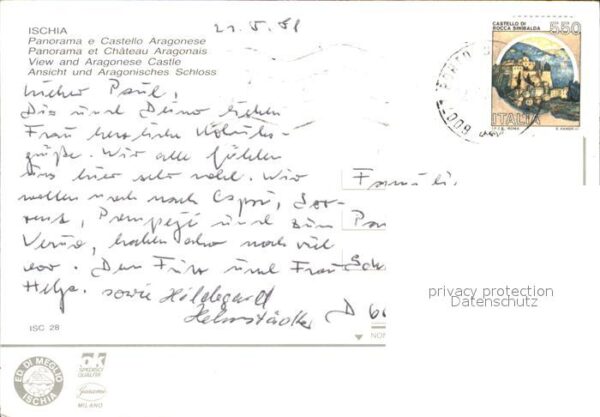 ISCHIA
Panorama e Castello Aragonese
Panorama et Château Aragonais
View and Aragonese Castle
Ansicht und Aragonisches Schloss
CASTELLO DI
ROCCA SINIBALDA
550
ITALIA
Lieber Paul,
Dir und Deiner lieben
Frau herzliche Urlaubs-
grüße. Wir alle fühlen
uns hier sehr wohl. Wir
wollen noch nach Capri, Sor-
rent, Pompeji und zum
Vesuv, haben also noch viel
vor.
und Frau
Helga. sowie Hildegard
Helmstädter
Famili
D 66
ISC 28
privacy protection
Datenschutz
ED. DI MEGLIO
ISCHIA
MILANO